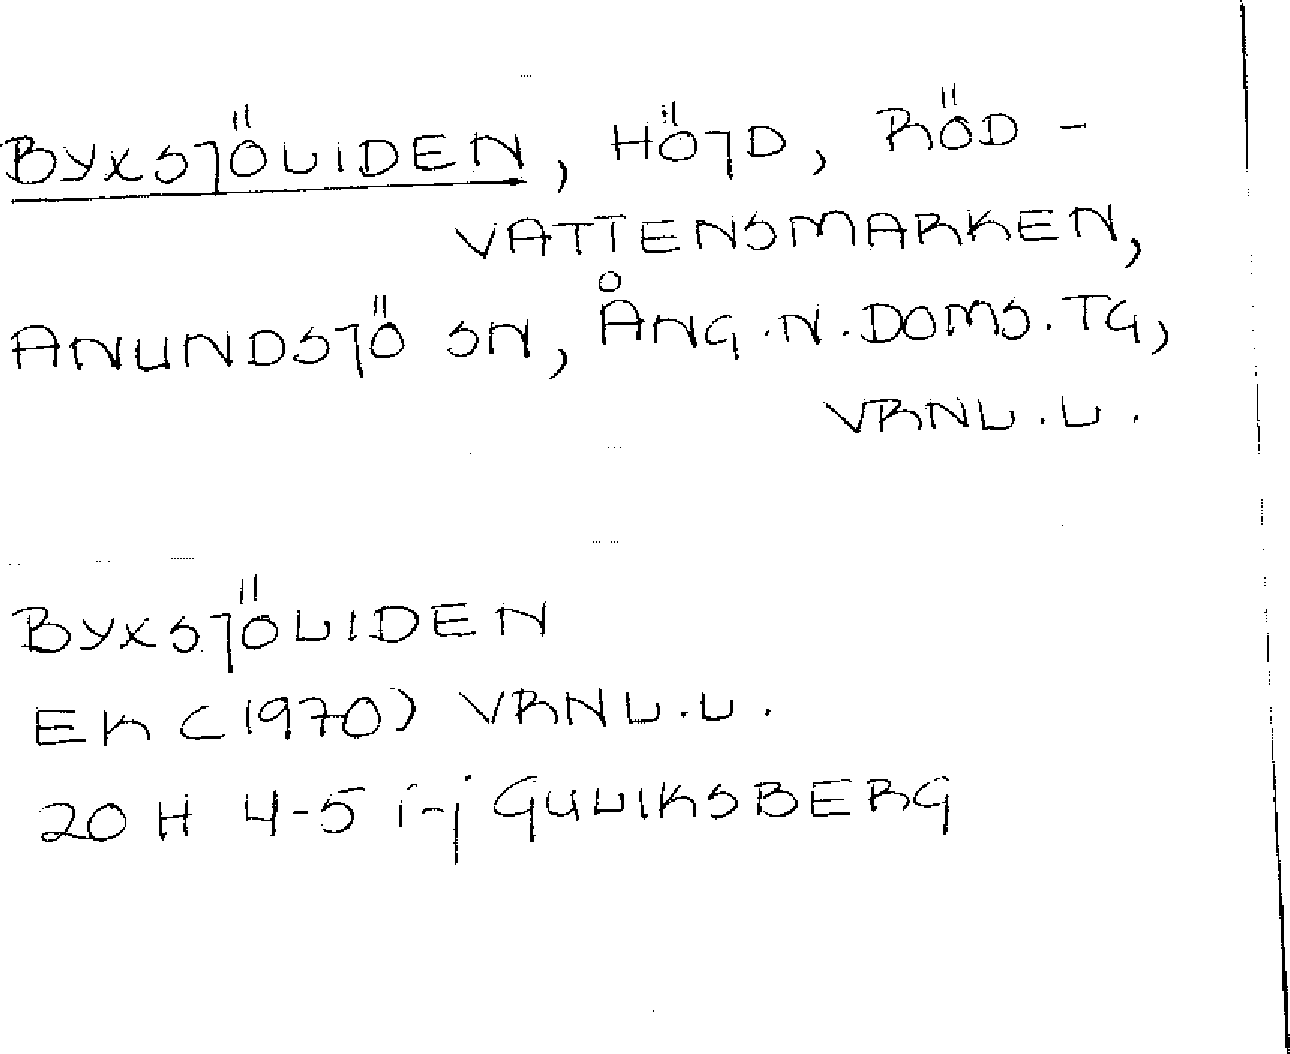 BYXSJÖLIDEN, HÖJD, RÖD-
VATTENSMARKEN,
ANUNDSJÖ SN, ÅNG.N.DOMS.TG,
VRNL.L.
BYXSJÖLIDEN
EK (1970) VRNL.L.
20 H 4-5 i-j GULLIKSBERG